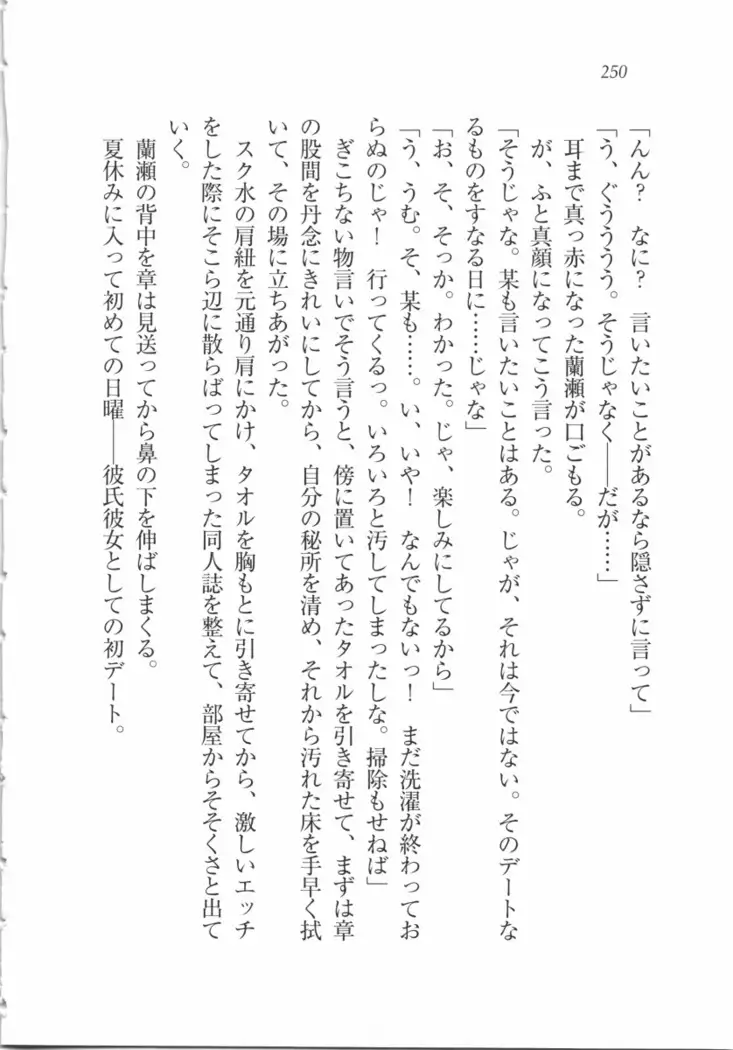 250
「んん?　なに?　言いたいことがあるなら隠さずに言って」
「う、ぐうううう。そうじゃなく――だが……」
耳まで真っ赤になった蘭瀬が口ごもる。
が、ふと真顔になってこう言った。
「そうじゃな。某も言いたいことはある。じゃが、それは今ではない。そのデートな
るものをすなる日に……じゃな」
「お、そ、そっか。わかった。じゃ、楽しみにしてるから」
「う、うむ。そ、某も……。い、いや!　なんでもないっ!　まだ洗濯が終わってお
らぬのじゃ!　行ってくるっ。いろいろと汚してしまったしな。掃除もせねば」
ぎこちない物言いでそう言うと、傍に置いてあったタオルを引き寄せて、まずは章
の股間を丹念にきれいにしてから、自分の秘所を清め、それから汚れた床を手早く拭
いて、その場に立ちあがった。
スク水の肩紐を元通り肩にかけ、タオルを胸もとに引き寄せてから、激しいエッチ
をした際にそこら辺に散らばってしまった同人誌を整えて、部屋からそそくさと出て
いく。
蘭瀬の背中を章は見送ってから鼻の下を伸ばしまくる。
夏休みに入って初めての日曜――彼氏彼女としての初デート。